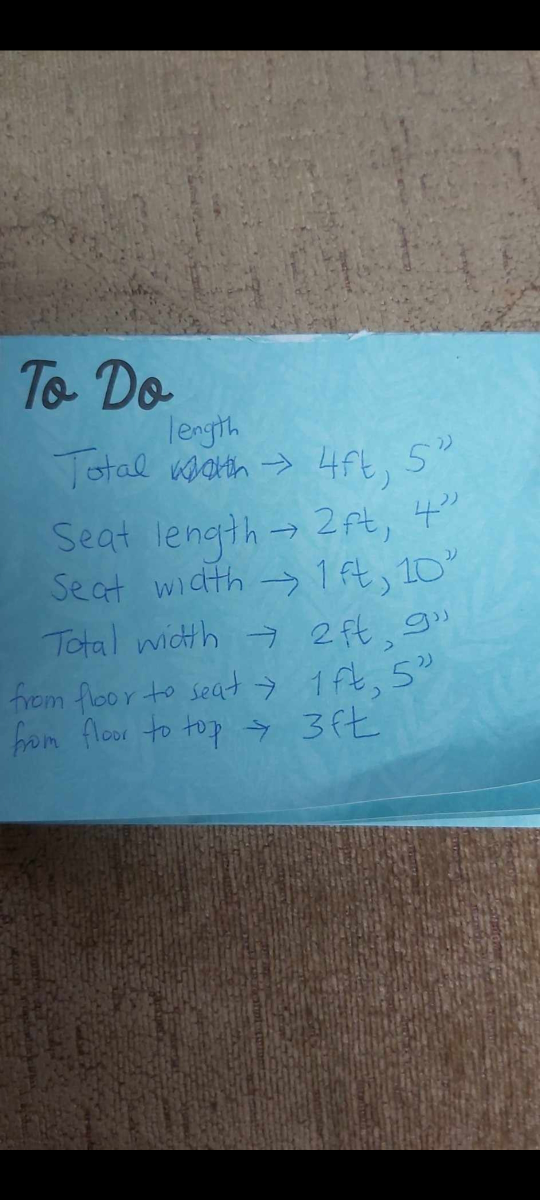 To Do
length
Total width → 4ft, 5"
Seat length → 2 ft, 4"
Seat width → 1 ft, 10"
Total width → 2 ft, 9"
from floor to seat → 1 ft, 5"
from floor to top → 3 ft